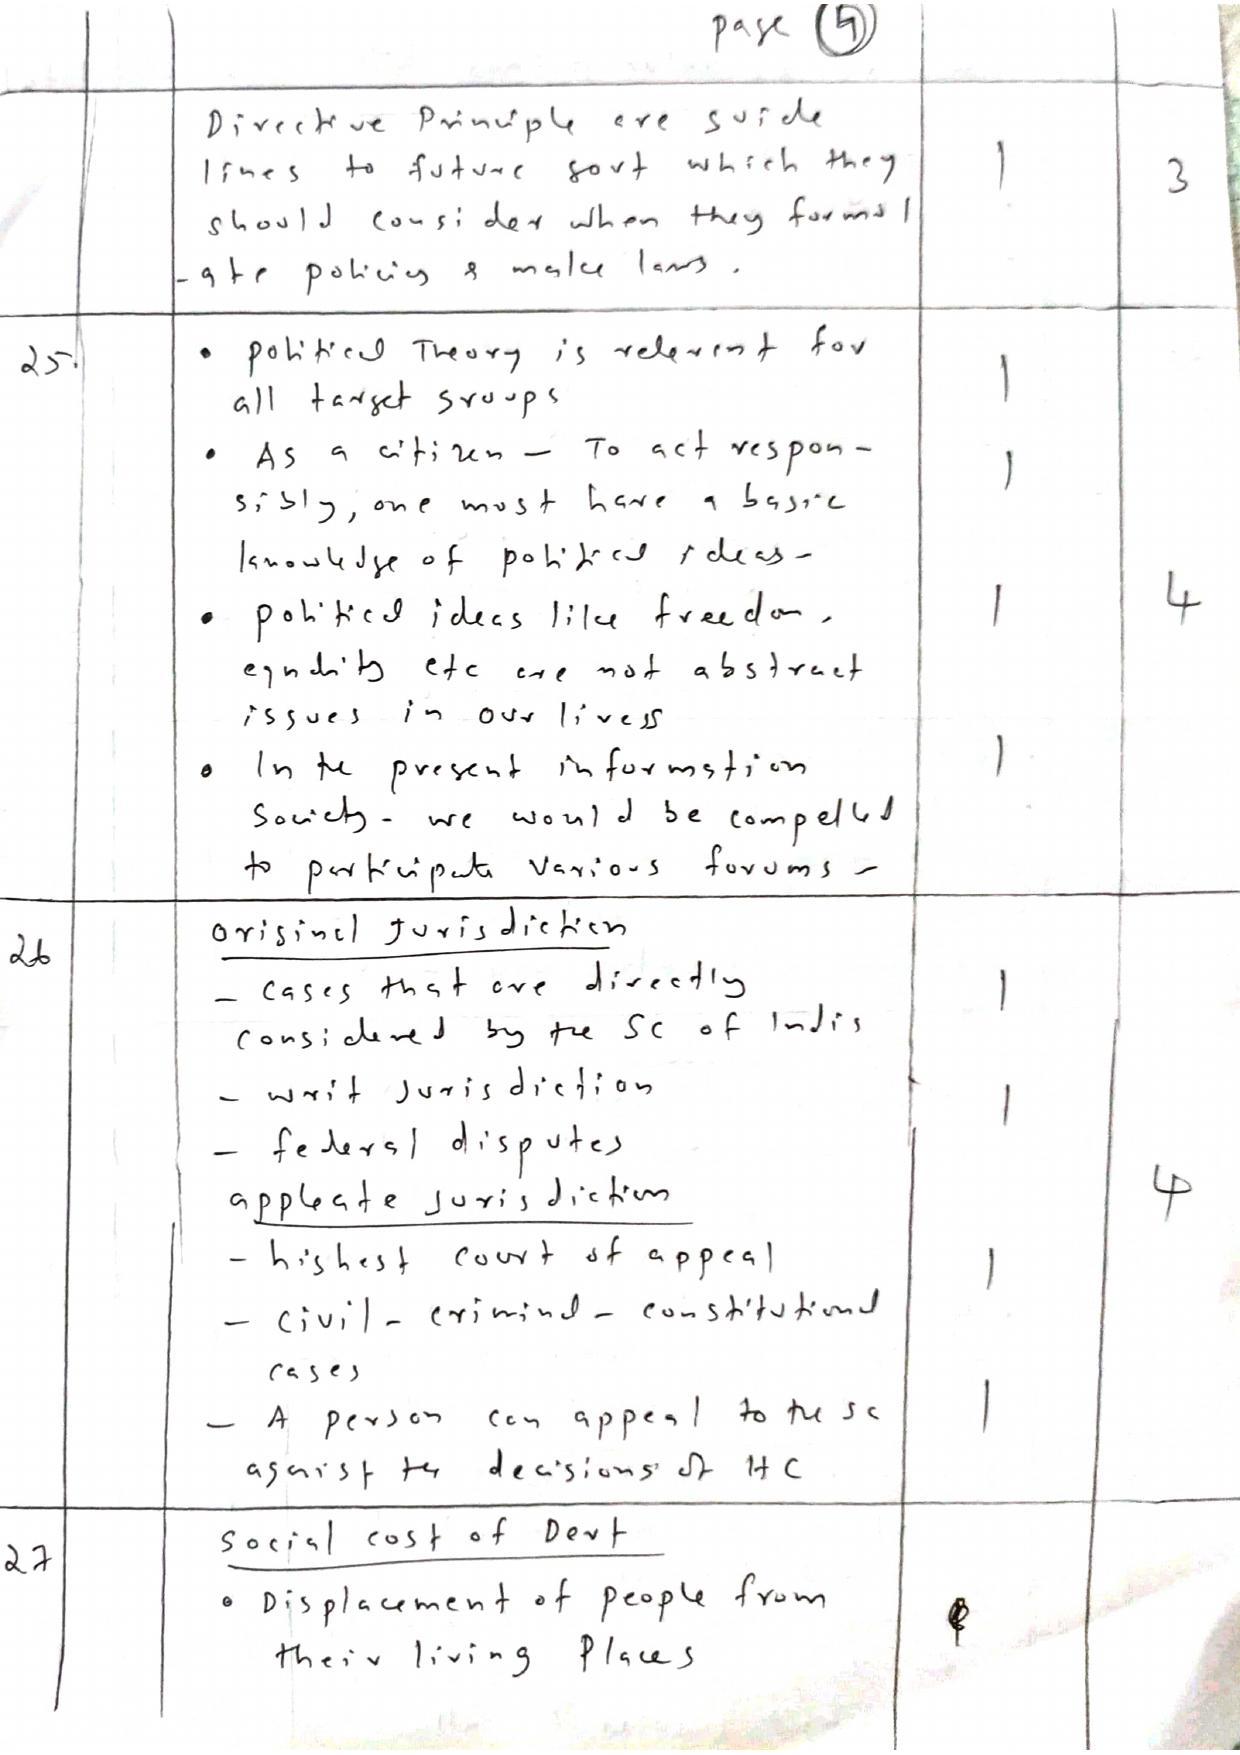 page 5
Directive Principle are guide
lines to future govt which they 1 3
should consider when they formul
-ate policies & make laws.
25. • political Theory is relevent for 1
all target groups
• As a citizen - To act respon- 1
sibly, one must have a basic
knowledge of political ideas-
• political ideas like freedom, 1 4
equality etc are not abstract
issues in our livess
• In the present information 1
Society - we would be compelled
to participate various forums -
26 original Jurisdiction
- cases that are directly 1
considered by the SC of India
- writ Jurisdiction 1
- federal disputes
appleate Jurisdiction 4
- highest court of appeal 1
- civil - criminal - constitutional
cases
- A person can appeal to the sc 1
against the decisions of HC
27 Social cost of Devt
• Displacement of people from
their living Places